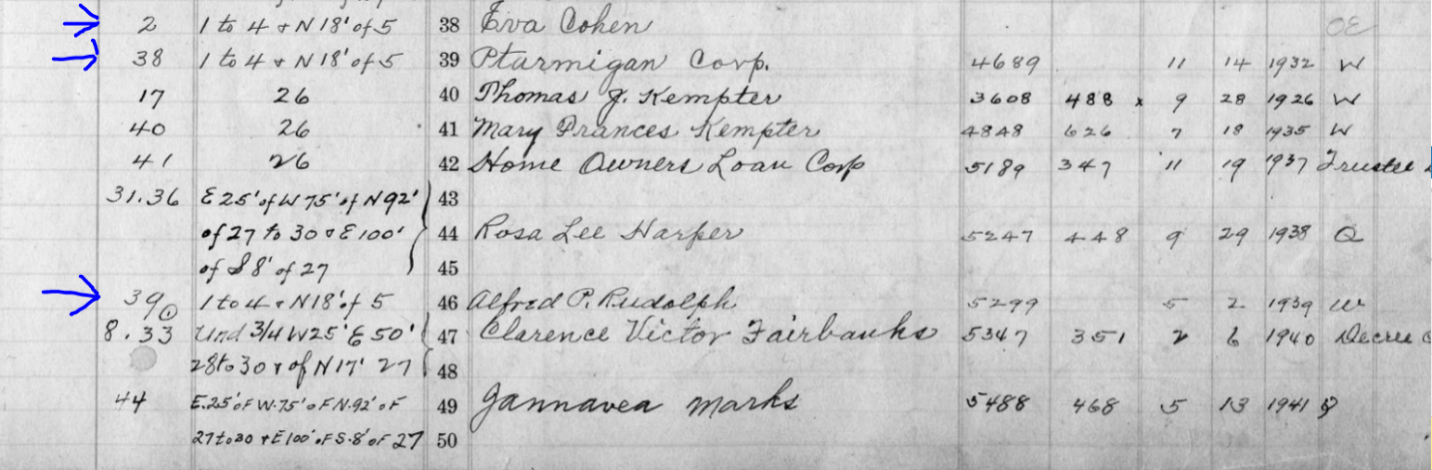 2 1 to 4 & N 18' of 5 38 Eva Cohen OE
38 1 to 4 & N 18' of 5 39 Ptarmigan Corp. 4689 11 14 1932 W
17 26 40 Thomas J. Kempter 3608 488 x 9 28 1926 W
40 26 41 Mary Frances Kempter 4848 626 7 18 1935 W
41 26 42 Home Owners Loan Corp 5189 347 11 19 1937 Trustee
31.36 E 25' of W 75' of N 92' 43
of 27 to 30 & E 100' 44 Rosa Lee Harper 5247 448 9 29 1938 Q
of S 8' of 27 45
39 1 1 to 4 & N 18' of 5 46 Alfred P. Rudolph 5299 5 2 1939 W
8.33 Und 3/4 W 25' E 50' 47 Clarence Victor Fairbanks 5347 351 2 6 1940 Decree
28 to 30 & of N 17' 27 48
44 E.25' of W.75' of N.92' of 49 Jannavea Marks 5488 468 5 13 1941 Q
27 to 30 & E 100' of S.8' of 27 50